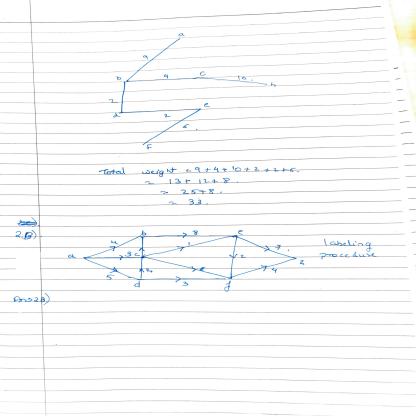 a
9
b 4 c 10 h
2
d 2 e
6
f
Total weight = 9+4+10+2+2+6.
= 13+12+8.
= 25+8.
= 33.
2.B)
b 8 e
4 1 7
a 3 c 2 z
5 2 4
d 3 f
labeling
procedure
Ans 2B)